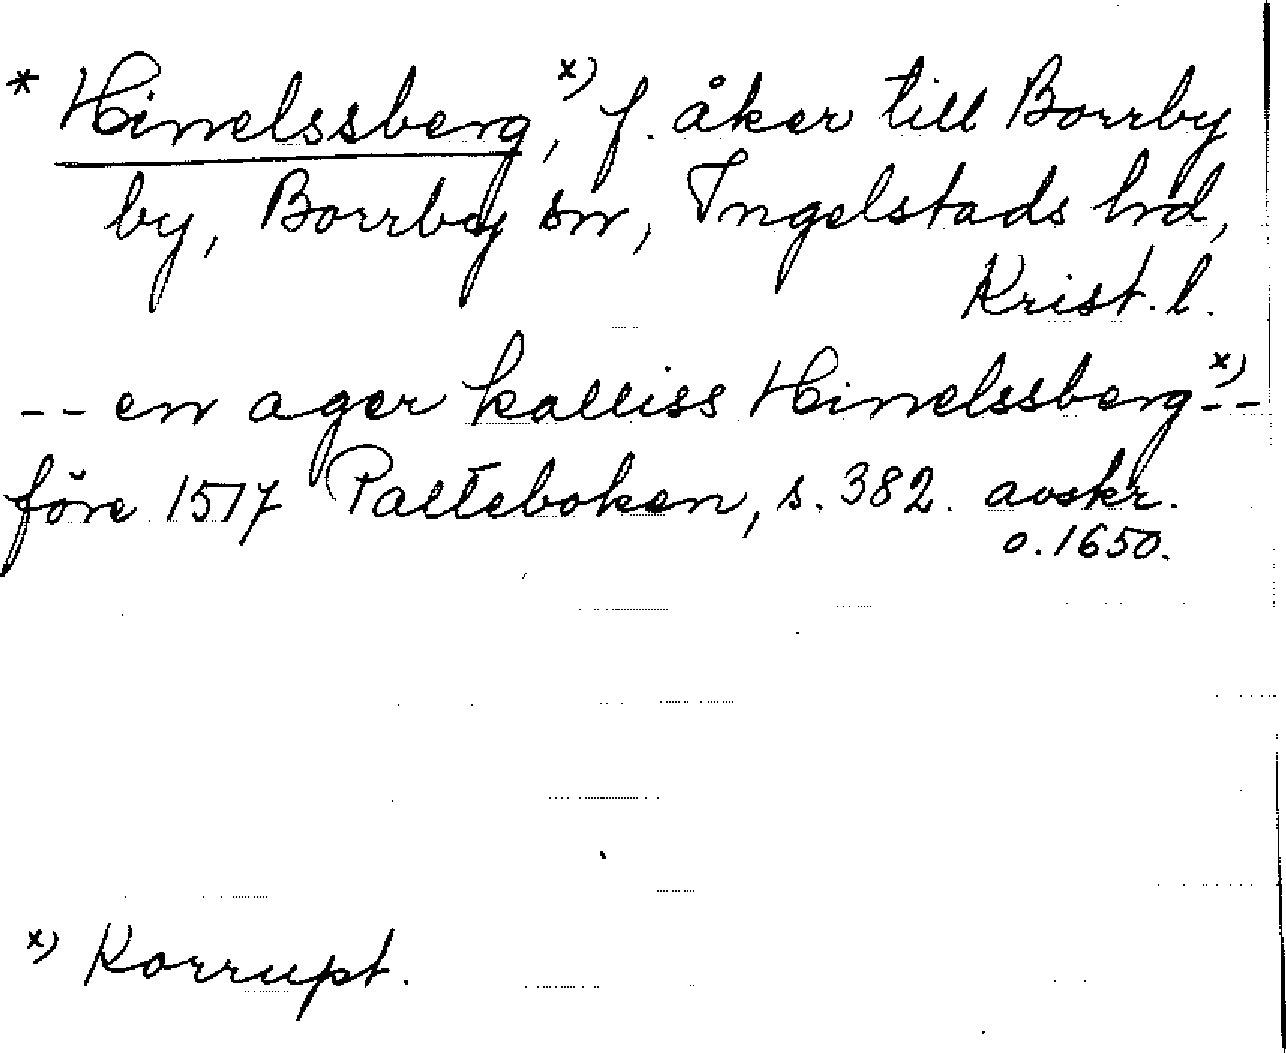 * Hinnelssberg, x) f. åker till Borrby
by, Borrby sn, Ingelstads hd,
Krist. l.
-- en ager kalliss Hinnelssberg x) --
före 1517 Palteboken, s. 382. avskr.
o. 1650.
x) Korrupt.